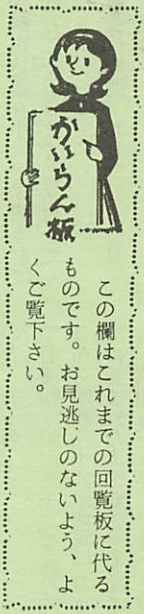 かいらん板
この欄はこれまでの回覧板に代る
ものです。お見逃しのないよう、よ
くご覧下さい。